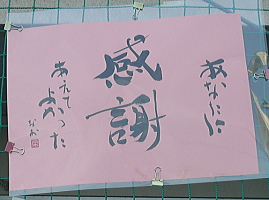 あなたに
感謝
あえて
よかった